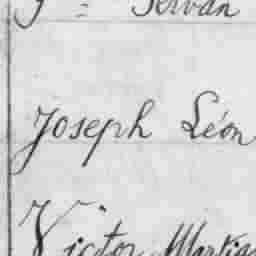 Servan
Joseph Léon
Victor Martin